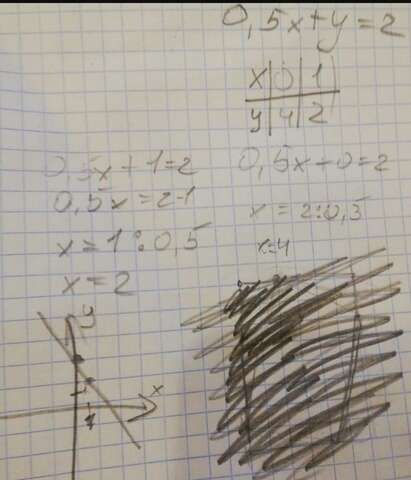 0,5x+y=2
x 0 1
y 4 2
0,5x+1=2
0,5x=2-1
x=1:0,5
x=2
0,5x+0=2
x=2:0,5
x=4
y
x